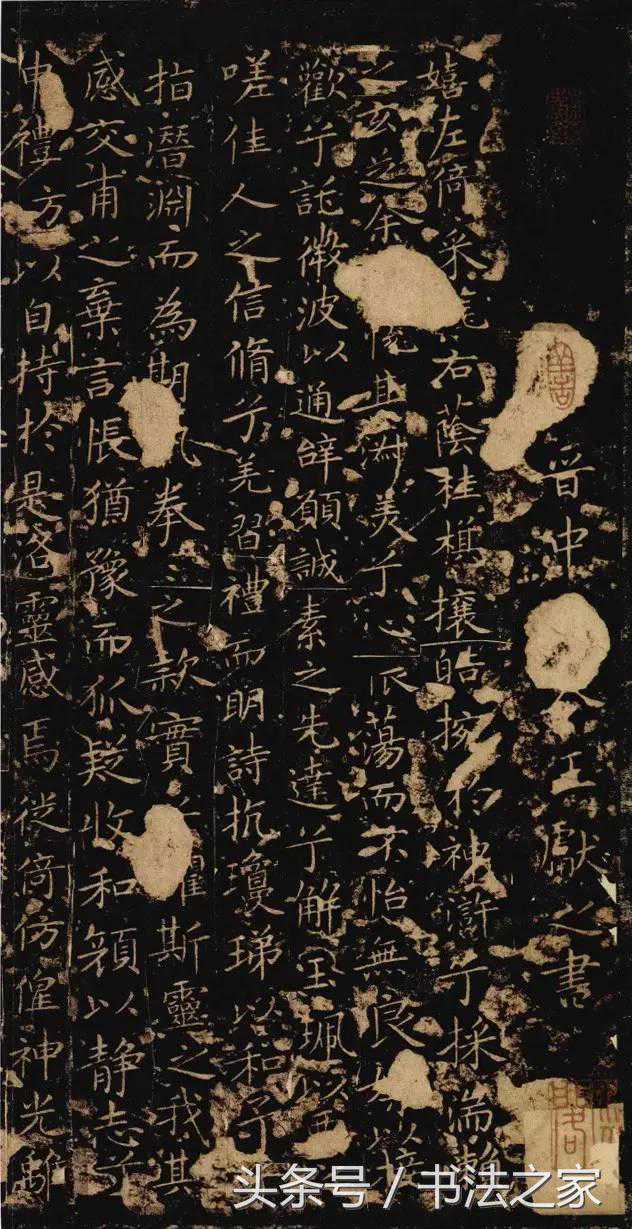 晉中令王獻之書
嬉左倚采旄右蔭桂旗攘皓捥於神滸兮採湍瀨
之玄芝余悅其淑美兮心振蕩而不怡無良媒以接
歡兮託微波以通辭願誠素之先達兮解玉珮以要
嗟佳人之信脩兮羌習禮而明詩抗瓊珶以和予
指潛淵而為期執拳〻之款實兮懼斯靈之我欺
感交甫之棄言悵猶豫而狐疑收和顏以靜志兮
申禮方以自持於是洛靈感焉徙倚仿偟神光離
头条号 / 书法之家